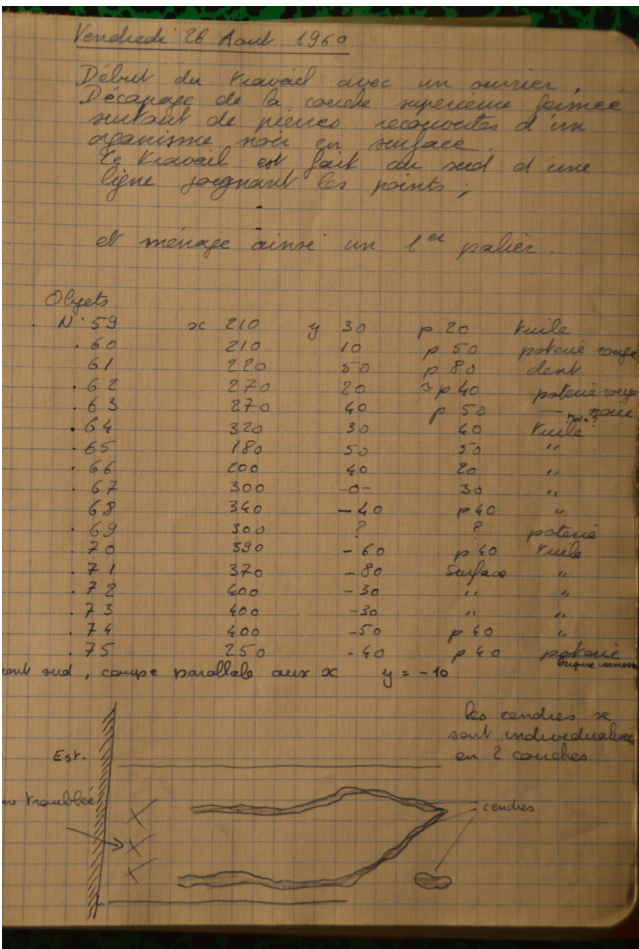 Vendredi 26 Aout 1960
Début du travail avec un ouvrier.
Décapage de la couche superieure formée
surtout de pierres recouvertes d'un
organisme noir en surface.
Le travail est fait au sud d'une
ligne joignant les points ;
et ménage ainsi un 1er palier.
Objets
N° 59 x 210 y 30 p 20 tuile
. 60 210 10 p 50 poterie rouge
61 220 50 p 80 dent
. 62 270 20 p 40 poterie roug
. 63 270 40 p 50 — noire
. 64 320 30 40 tuile
. 65 180 50 50 "
. 66 200 40 20 "
. 67 300 -0- 30 "
68 340 -40 p 40 "
. 69 300 ? ? poterie
. 70 390 -60 p 40 tuile
. 71 370 -80 Surface "
. 72 400 -30 " "
. 73 400 -30 " "
. 74 400 -50 p 40 "
. 75 250 -40 p 40 poterie
sud, coupe parallele aux x y = -10
les cendres se
sont individualisées
en 2 couches
Est.
troublée
cendres